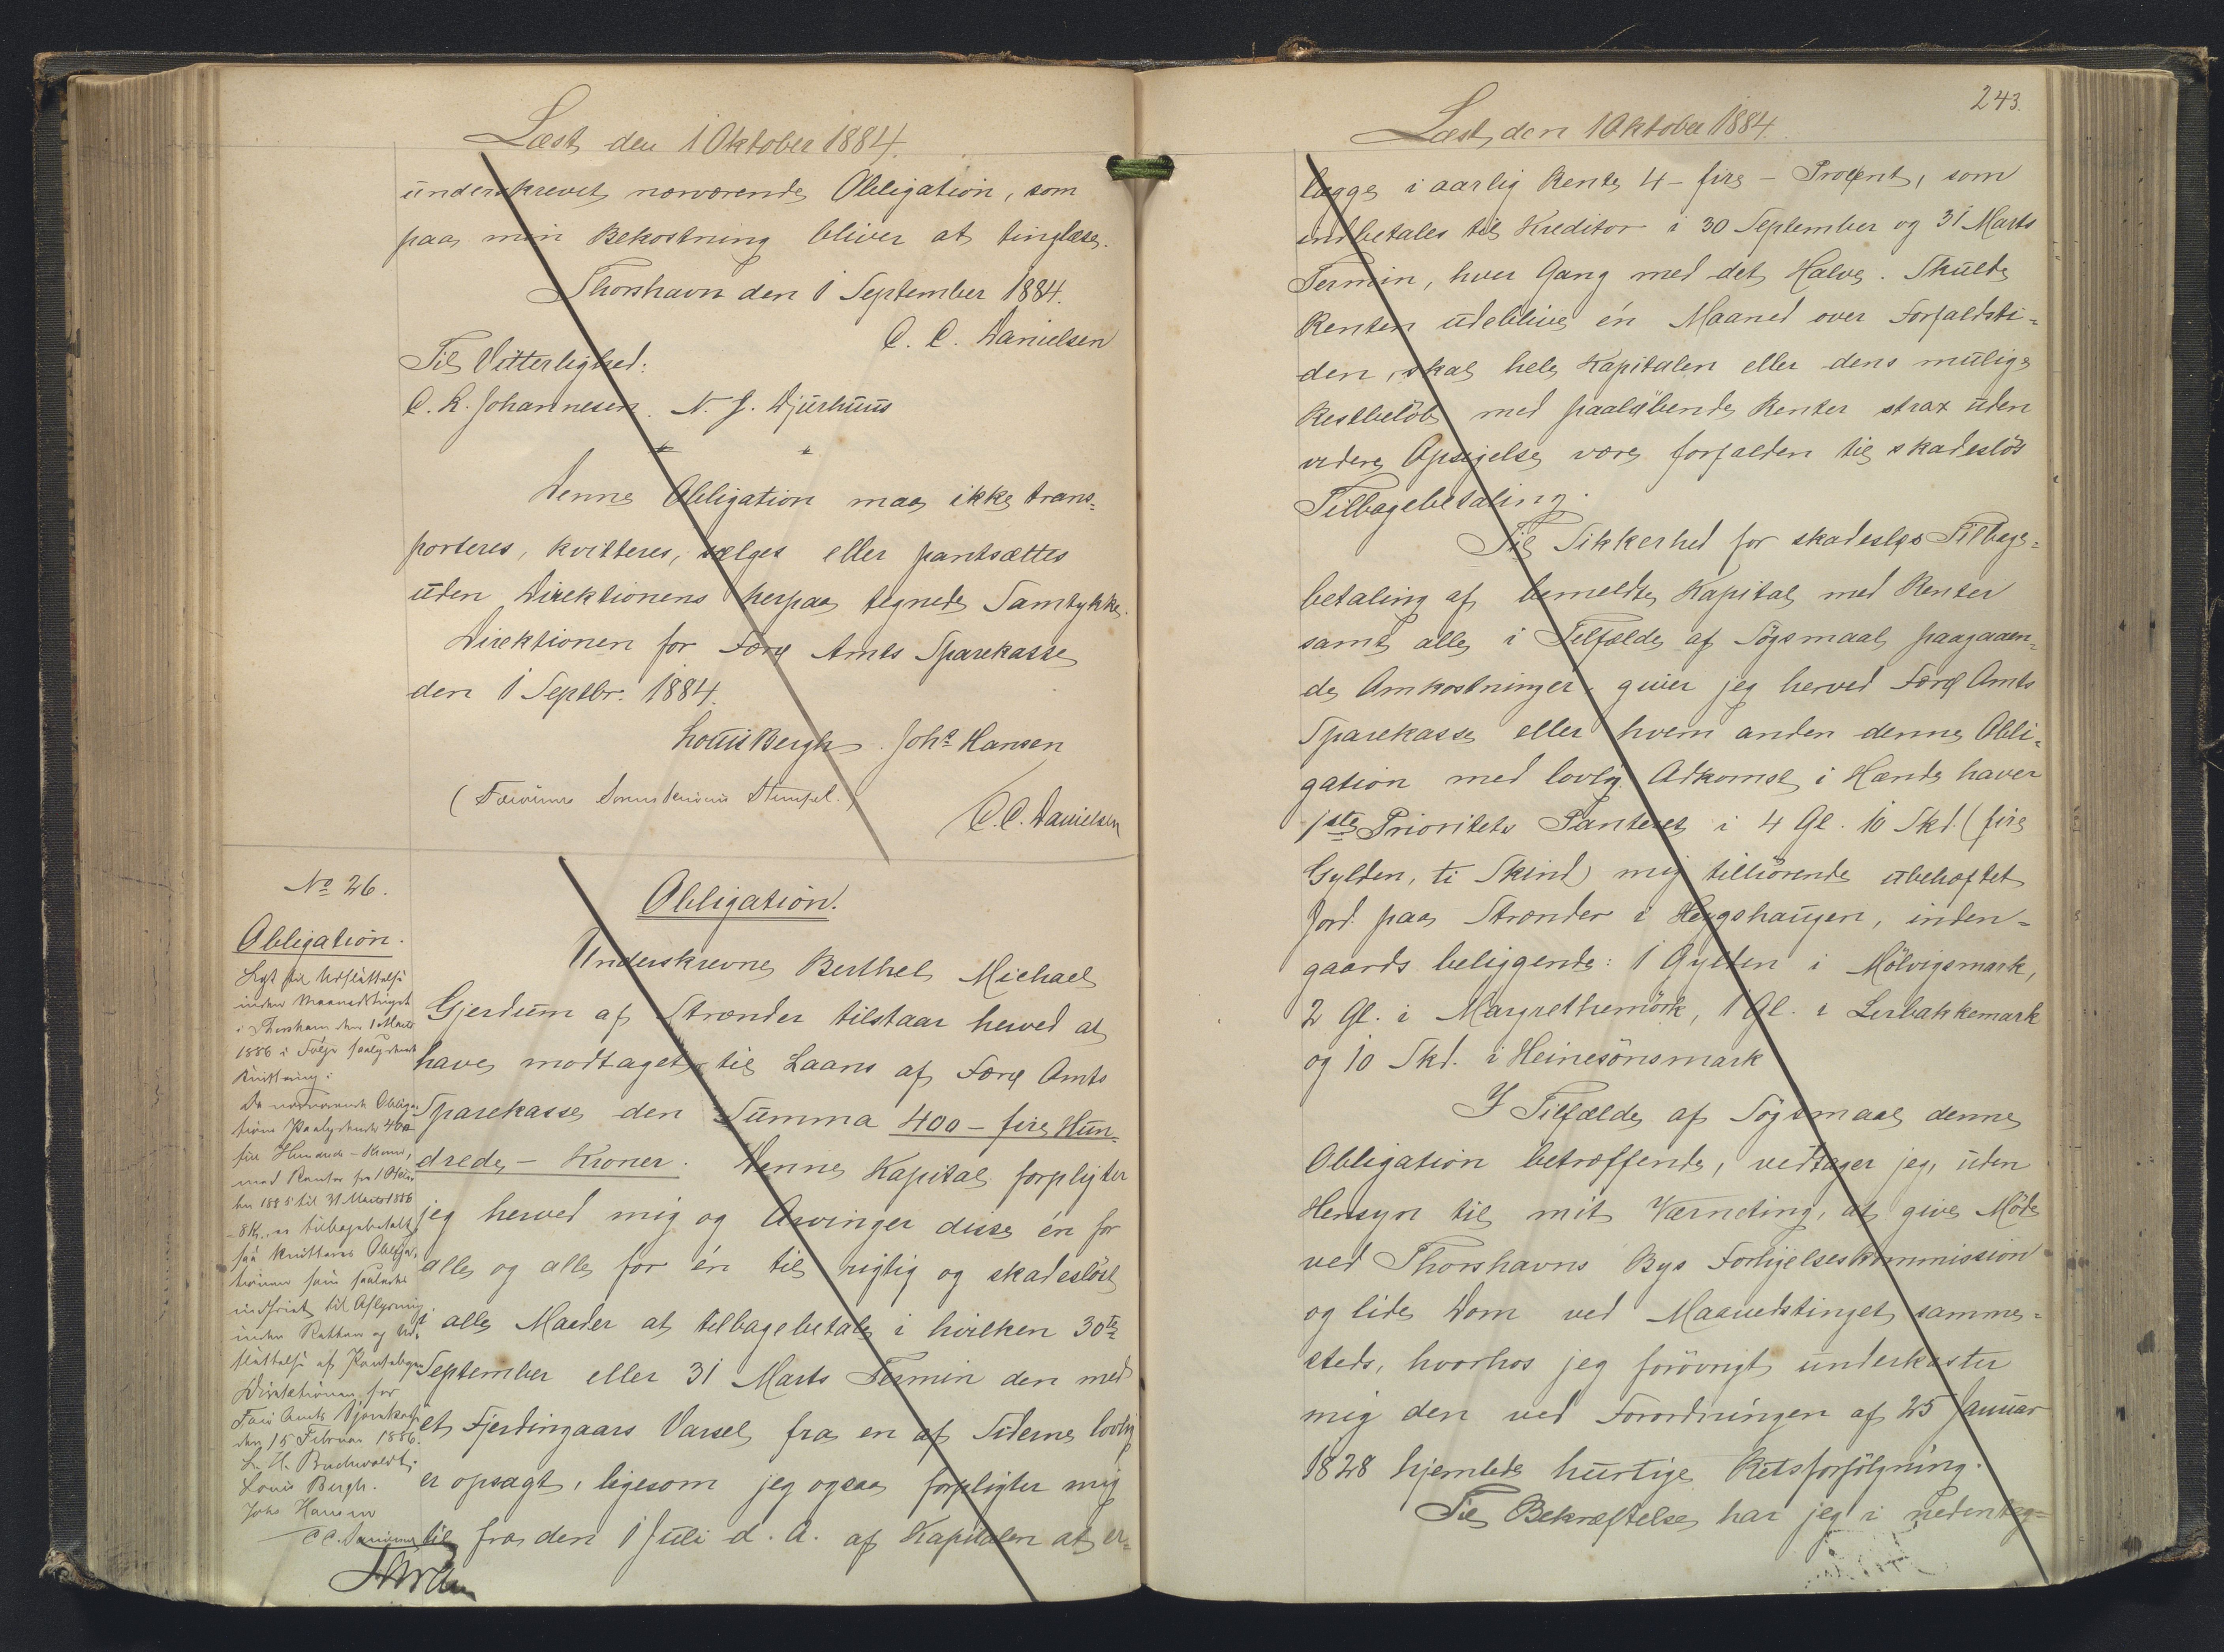 Læst den 1 Oktober 1884.
underskrevet nærværende Obligation, som
paa min Bekostning bliver at tinglæse.
Thorshavn den 1 September 1884.
C. C. Danielsen
Til Vitterlighed:
C. R. Johannesen. N. J. Djurhuus
Denne Obligation maa ikke trans=
porteres, kvitteres, sælges eller pantsættes
uden Direktionens herpaa tegnede Samtykke.
Direktionen for Færø Amts Sparekasse
den 1 Septbr. 1884.
Louis Bergh. Johs Hansen
C. C. Danielsen
No 26.
Obligation.
Lyst til Udslettelse
inden Maanedstinget
i Thorshavn den 1 Marts
1886 i Følge saalydende
Kvittering:
Da nærværende Obliga
tions Paalydende 400
fire Hundrede - Kroner,
med Renter fra 1 Okto
ber 1885 til 31 Marts 1886
- 8 Kr., er tilbagebetalt,
saa kvitteres Obliga-
tionen som saaledes
indfriet til Aflysning
inden Retten og Ud-
slettelse af Pantebogen
Direktionen for
Færø Amts Sparekasse
den 15 Februar 1886.
L. H. Buchwaldt.
Louis Bergh.
Johs Hansen
C C. Danielsen
Obligation.
Underskrevne Berthel Michael
Gjerdum af Strænder tilstaar herved at
have modtaget til Laans af Færø Amts
Sparekasse den Summa 400 - fire Hun=
drede - Kroner. Denne Kapital forpligter
jeg herved mig og Arvinger disse én for
alle og alle for én til rigtig og skadesløst
i alle Maader at tilbagebetale i hvilken 30te
September eller 31 Marts Termin den med
et Fjerdingaars Varsel fra en af Siderne lovlig
er opsagt, ligesom jeg ogsaa forpligter mig
til fra den 1 Juli d. A. af Kapitalen at er=
243.
Læst den 1 Oktober 1884.
lægge i aarlig Rente 4 - fire - Procent, som
indbetales til Kreditor i 30 September og 31 Marts
Termin, hver Gang med det Halve. Skulde
Renten udeblive én Maaned over Forfaldsti=
den, skal hele Kapitalen eller dens mulige
Restbeløb med paaløbende Renter strax uden
videre Opsigelse være forfalden til skadesløs
Tilbagebetaling.
Til Sikkerhed for skadesløs Tilbage=
betaling af bemeldte Kapital med Renter
samt alle i Tilfælde af Søgsmaal paagaaen=
de Omkostninger, giver jeg herved Færø Amts
Sparekasse eller hvem anden denne Obli=
gation med lovlig Adkomst i Hænde haver
1ste Prioritets Panteret i 4 Gl. 10 Skd. (fire
Gylden, ti Skind) mig tilhørende ubehæftet
Jord paa Strænder i Heygshaugen, inden=
gaards beliggende: 1 Gylden i Mölvigsmark,
2 Gl. i Margrethemörk, 1 Gl. i Lerbakkemark
og 10 Skd. i Heinesönsmark
I Tilfælde af Søgsmaal denne
Obligation betræffende, vedtager jeg, uden
Hensyn til mit Værneting, at give Møde
ved Thorshavns Bys Forligelseskommission
og lide Dom ved Maanedstinget samme=
steds, hvorhos jeg forøvrigt underkaster
mig den ved Forordningen af 25 Januar
1828 hjemlede hurtige Retsforfølgning.
Til Bekræftelse har jeg i nedenteg=